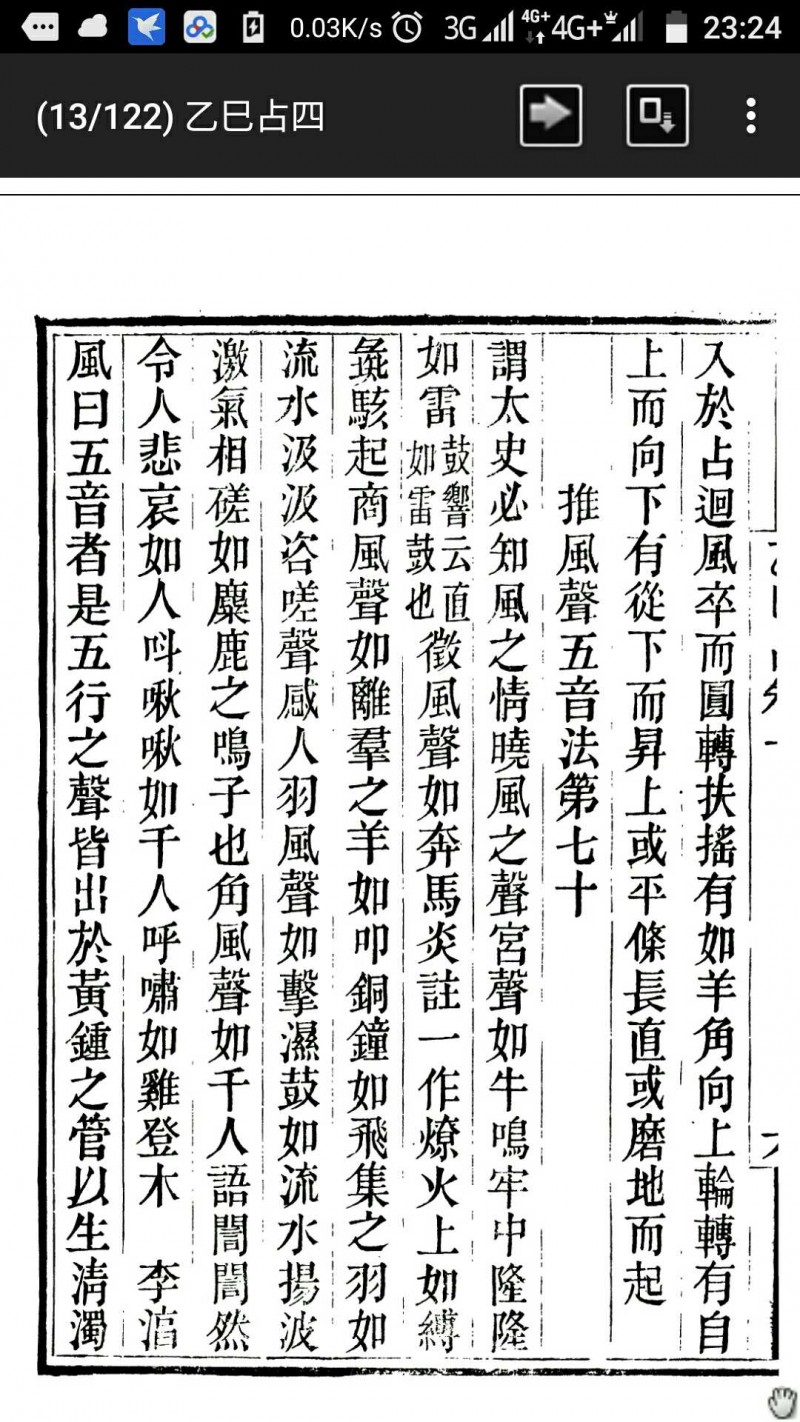 0.03K/s 3G 4G+ 4G+ 23:24
(13/122) 乙巳占四
入於占迴風卒而圓轉扶搖有如羊角向上輪轉有自
上而向下有從下而昇上或平條長直或磨地而起
推風聲五音法第七十
謂太史必知風之情曉風之聲宮聲如牛鳴牢中隆隆
如雷鼓響云直如雷鼓也徵風聲如奔馬炎註一作燎火上如縛
彘駭起商風聲如離羣之羊如叩銅鐘如飛集之羽如
流水汲汲咨嗟聲感人羽風聲如擊濕鼓如流水揚波
激氣相磋如麋鹿之鳴子也角風聲如千人語誾誾然
令人悲哀如人呌啾啾如千人呼嘯如雞登木 李
風曰五音者是五行之聲皆出於黃鍾之管以生淸濁